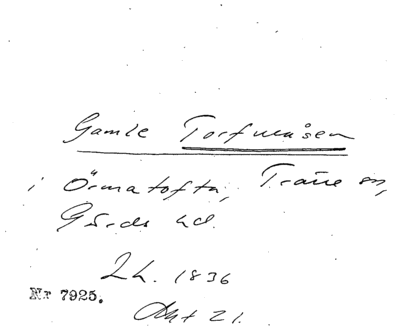 Gamle Torfmåsen
i Örmatofta, Träne sn,
Gärds hd.
Lh. 1836
Nr 7925.
Akt 21.